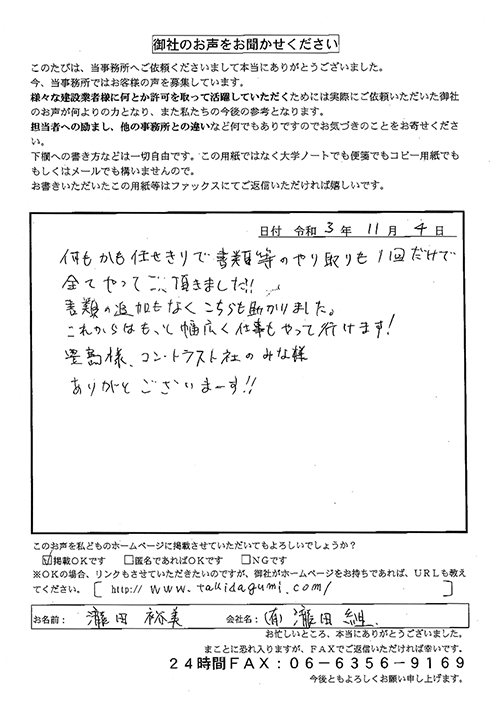 御社のお声をお聞かせください
このたびは、当事務所へご依頼くださいまして本当にありがとうございました。
今、当事務所ではお客様の声を募集しています。
様々な建設業者様に何とか許可を取って活躍していただくためには実際にご依頼いただいた御社
のお声が何よりの力となり、また私たちの今後の参考となります。
担当者への励まし、他の事務所との違いなど何でもありですのでお気づきのことをお寄せくださ
い。
下欄への書き方などは一切自由です。この用紙ではなく大学ノートでも便箋でもコピー用紙でも
もしくはメールでも構いませんので。
お書きいただいたこの用紙等はファックスにてご返信いただければ嬉しいです。
日付 令和 3 年 11 月 4 日
何もかも任せきりで書類等のやり取りも1回だけで
全てやって頂きました!!
書類の追加もなくこちらも助かりました。
これからはもっと幅広く仕事もやって行けます!
豊島様、コントラスト社のみな様
ありがとうございまーす!!
このお声を私どものホームページに掲載させていただいてもよろしいでしょうか?
☑掲載OKです □匿名であればOKです □NGです
※OKの場合、リンクもさせていただきたいのですが、御社がホームページをお持ちであれば、URLも教え
てください。[ http:// www.takidagumi.com/ ]
お名前: 瀧田 裕美 会社名: (有)瀧田組.
お忙しいところ、本当にありがとうございました。
まことに恐れ入りますが、FAXでご返信いただければ幸いです。
24時間FAX:06-6356-9169
今後ともよろしくお願い申し上げます。